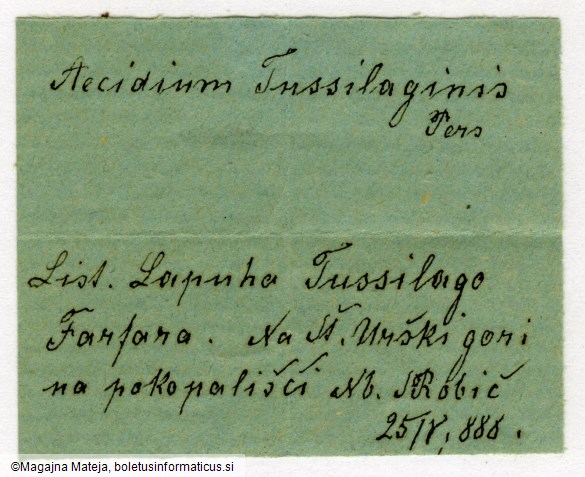 Aecidium Tussilaginis
Pers
List. Lapuha Tussilago
Farfara. Na Št. Urški gori
na pokopališči Nb. SRobič
25/V, 888.
©Magajna Mateja, boletusinformaticus.si